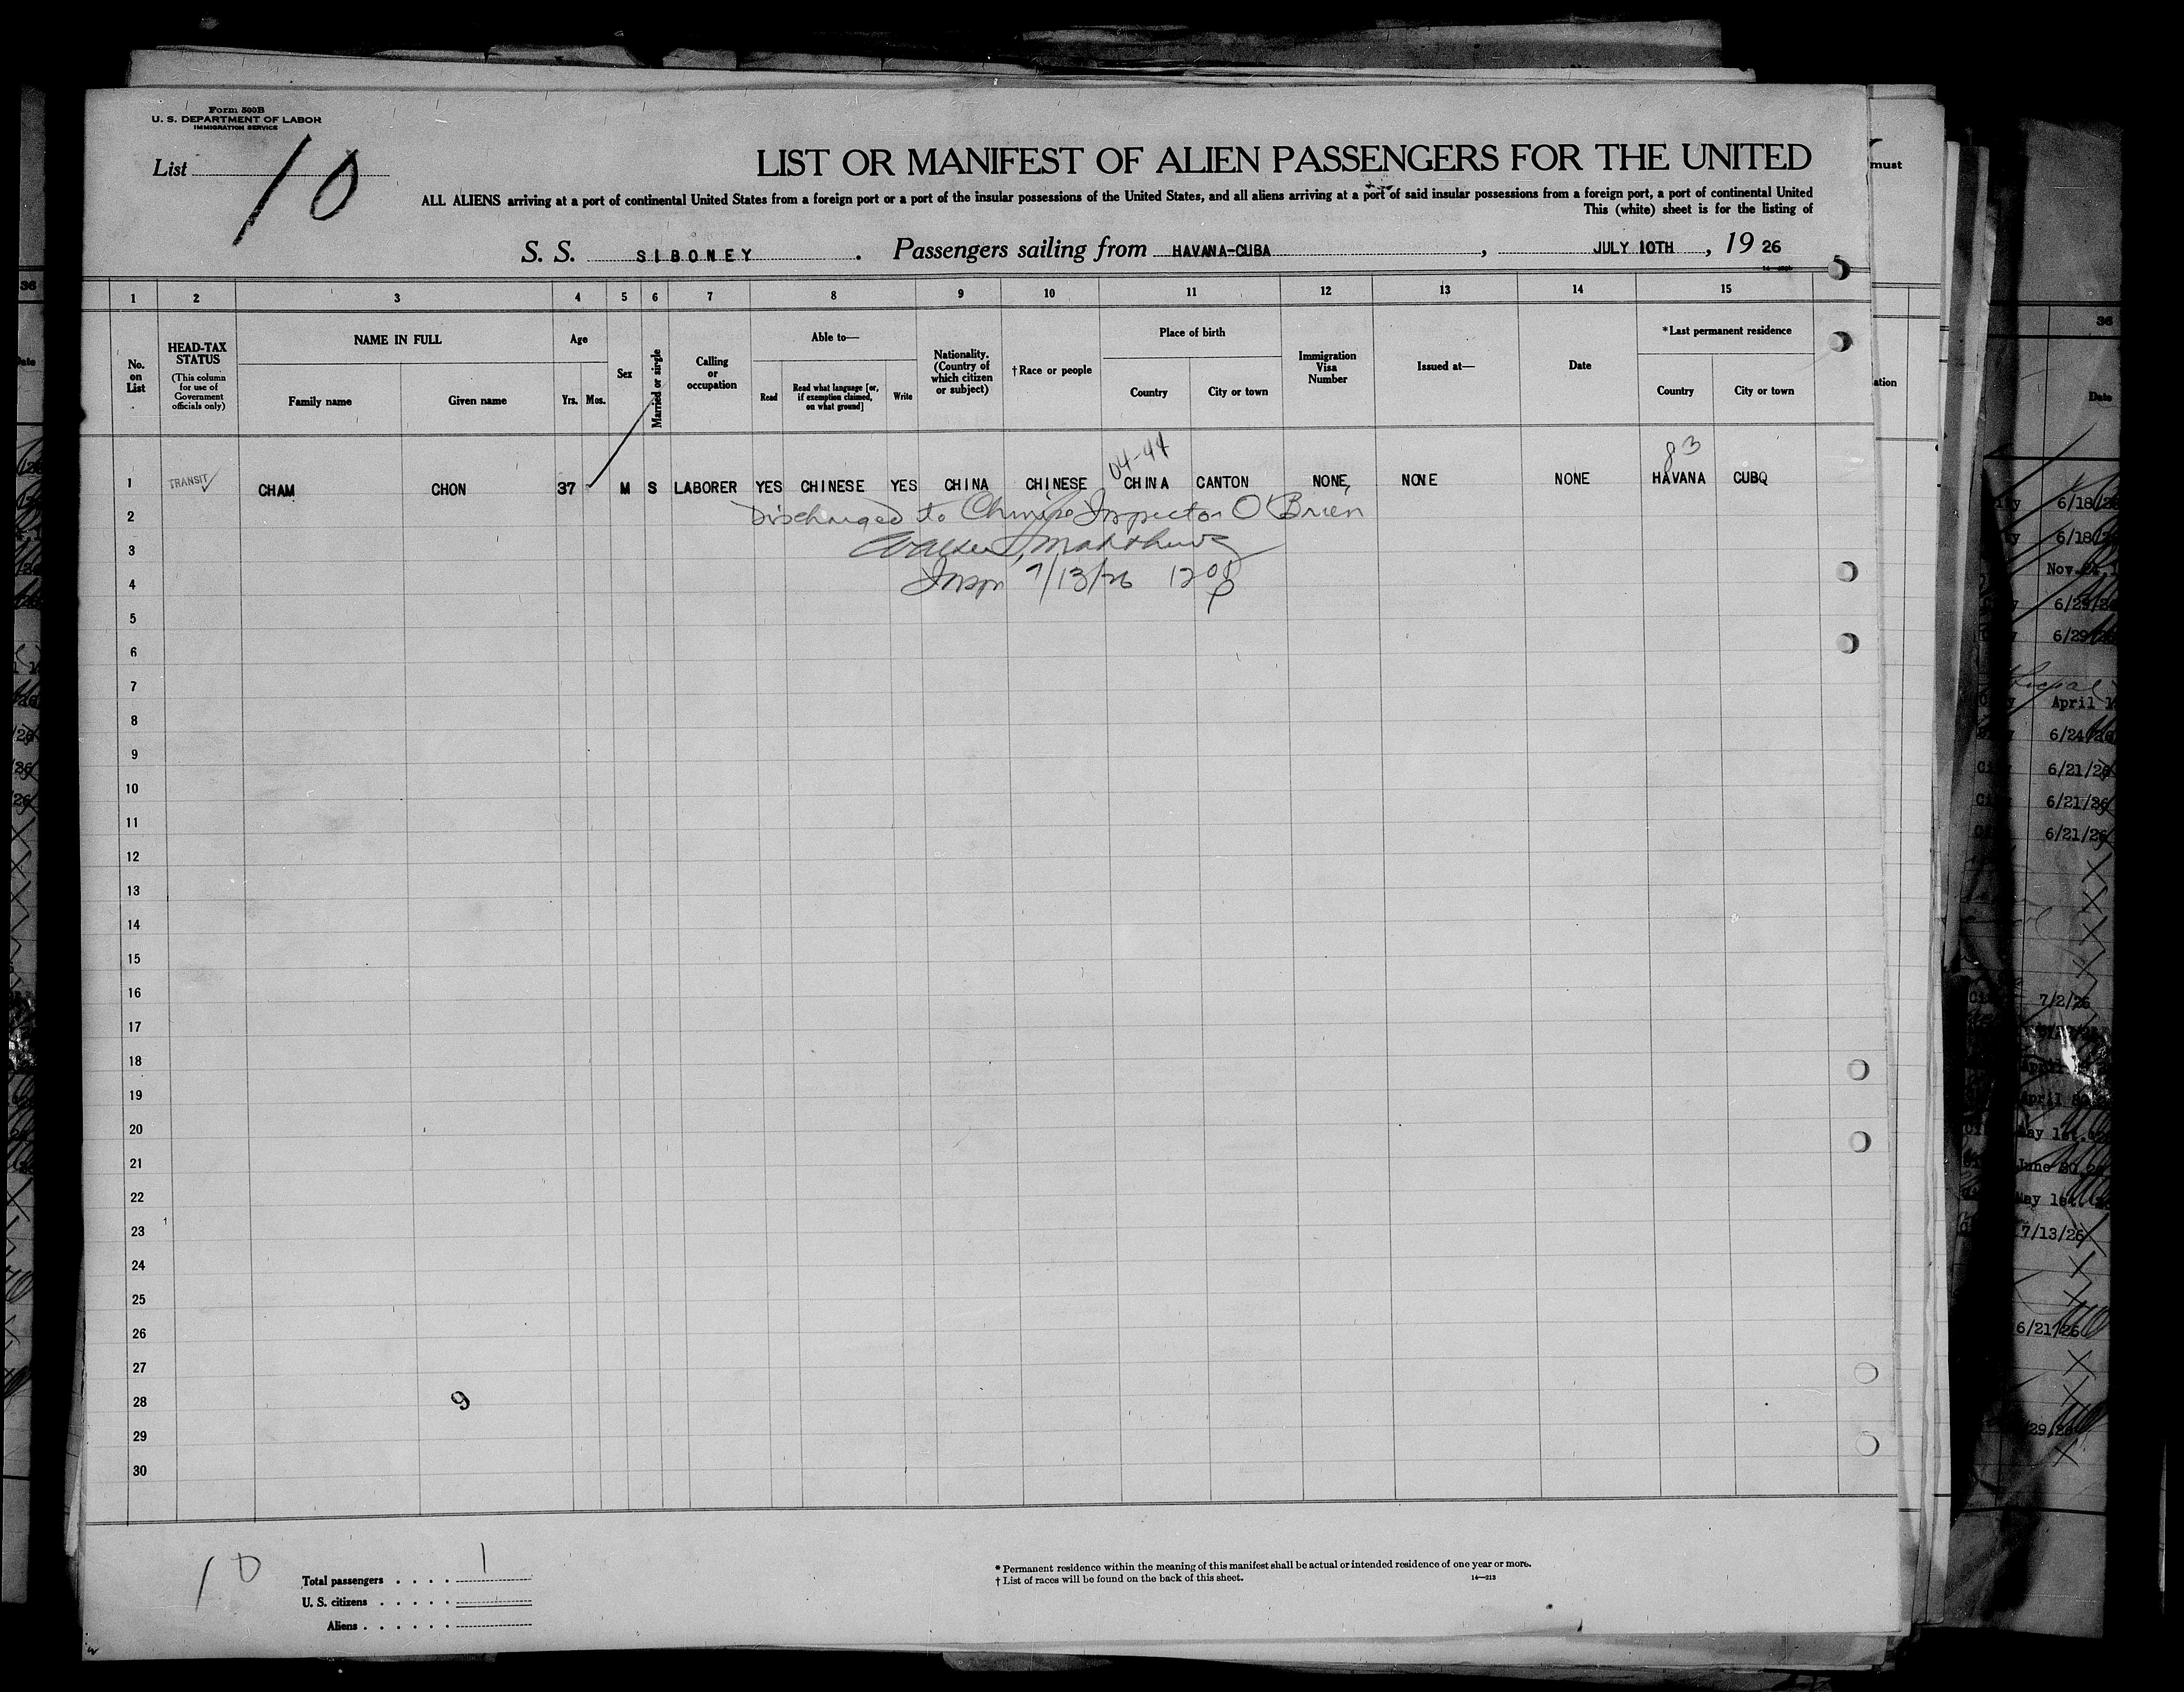 Form 500B
U. S. DEPARTMENT OF LABOR
IMMIGRATION SERVICE
List 10
LIST OR MANIFEST OF ALIEN PASSENGERS FOR THE UNITED
ALL ALIENS arriving at a port of continental United States from a foreign port or a port of the insular possessions of the United States, and all aliens arriving at a port of said insular possessions from a foreign port, a port of continental United
This (white) sheet is for the listing of
S. S. SIBONEY. Passengers sailing from HAVANA-CUBA, JULY 10TH, 1926
1 2 3 4 5 6 7 8 9 10 11 12 13 14 15
No. on List
HEAD-TAX STATUS (This column for use of Government officials only)
NAME IN FULL
Family name
Given name
Age
Yrs. Mos.
Sex
Married or single
Calling or occupation
Able to—
Read
Read what language [or, if exemption claimed, on what ground]
Write
Nationality. (Country of which citizen or subject)
†Race or people
Place of birth
Country
City or town
Immigration Visa Number
Issued at—
Date
*Last permanent residence
Country
City or town
04-44
83
1 TRANSIT CHAM CHON 37 M S LABORER YES CHINESE YES CHINA CHINESE CHINA CANTON NONE, NONE NONE HAVANA CUBQ
2 Discharged to Chinese Inspector O'Brien
3 Matthews
4 Inspr 7/13/26 12 00 p
5
6
7
8
9
10
11
12
13
14
15
16
17
18
19
20
21
22
23
24
25
26
27
28 9
29
30
10
Total passengers . . . . 1
U. S. citizens . . . . .
Aliens . . . . . .
* Permanent residence within the meaning of this manifest shall be actual or intended residence of one year or more.
† List of races will be found on the back of this sheet.
14—213
must
ation
36
Date
6/18/26
6/18/26
6/29/26
6/29/26
April 1
6/24/26
6/21/26
6/21/26
6/21/26
7/2/26
7/13/26
6/21/26